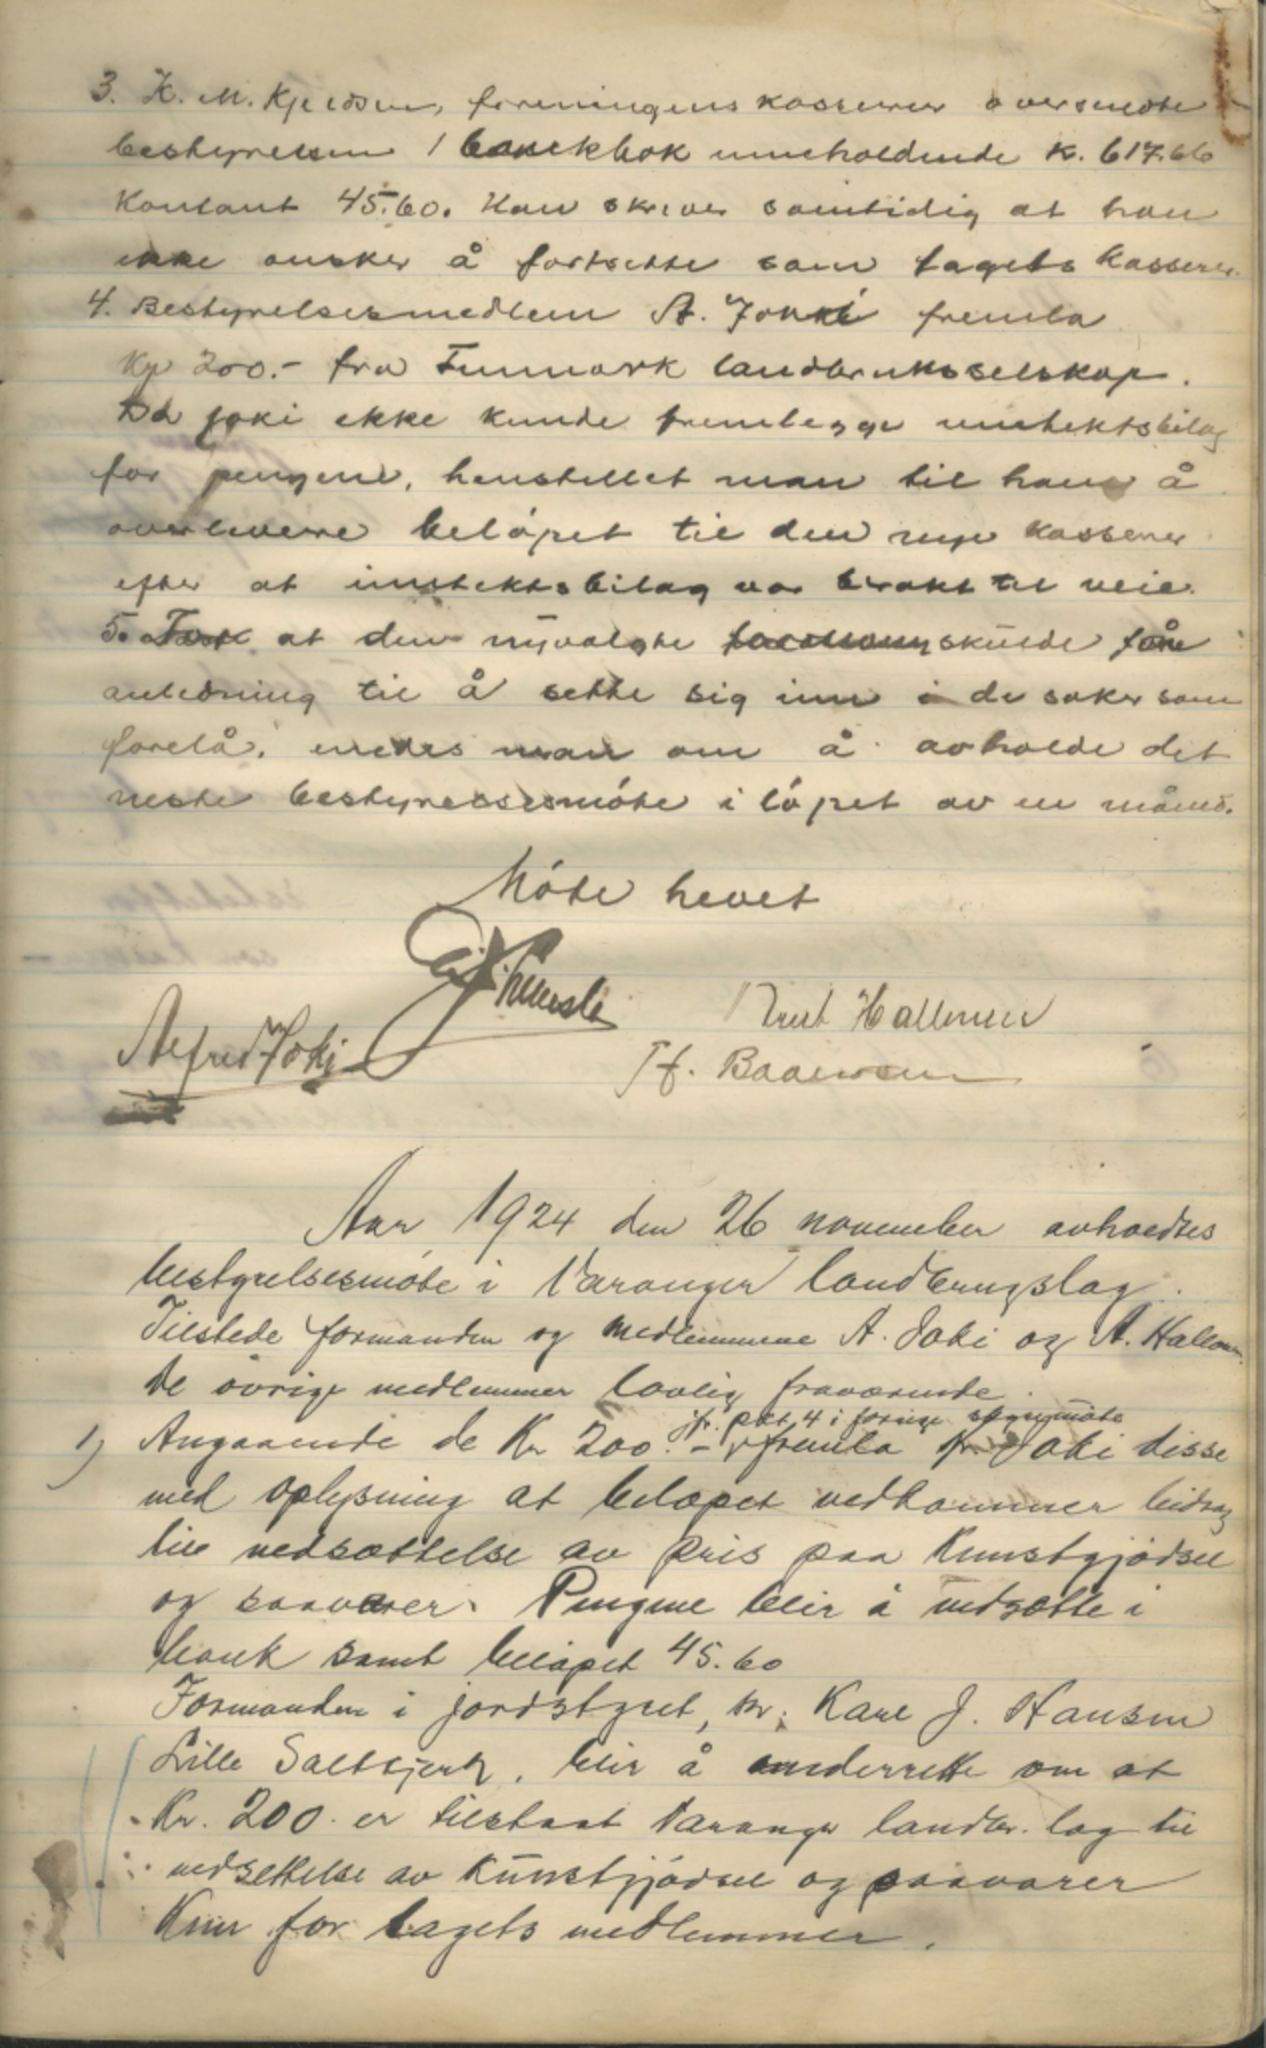 3. K. M. Kjeldsen, foreningens kasserer oversendte
bestyrelsen 1 bankbok inneholdende K. 617.66
Kontant 45.60. Han skriver samtidig at han
ikke ønsker å fortsette som lagets kasserer.
4. Bestyrelsesmedlem A. Joki fremla
Kr 200.- fra Finmark landbruksselskap.
Da Joki ikke kunde fremlegge inntektsbilag
for pengene, henstillet man til ham å
overlevere beløpet til den nye kasserer
efter at inntektsbilag var brakt til veie.
5. at den nyvalgte skulde få
anledning til å sette sig inn i de saker som
forelå, enedes man om å avholde det
neste bestyrelsesmøte i løpet av en måned.
Møte hevet
Alfred Joki
Hallonen
H. Baarsen
Aar 1924 den 26 november avholdtes
bestyrelsesmøte i Varanger landbrugslag.
Tilstede formanden og medlemmene A. Joki og A. Hallonen.
De øvrige medlemmer lovlig fraværende.
jfr. pkt. 4 i forrige styremøte
1) Angaaende de Kr 200.- fremla hr. Joki disse
med oplysning at beløpet vedkommer bidrag
til nedsættelse av pris paa Kunstgjødsel
og saavarer. Pengene blir å indsætte i
bank samt beløpet 45.60
Formanden i jordstyret, hr. Karl J. Hansen
Lille Saltkjerh, blir å underrette om at
Kr. 200. er tilstaat Varanger landbr. lag til
nedsettelse av Kunstgjødsel og saavarer
Kun for lagets medlemmer.